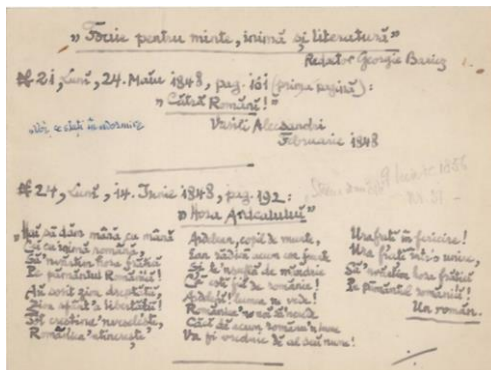 „Foaie pentru minte, inimă și literatură”
Redactor George Bariț
21, Luni, 24. Maiu 1848, pag. 161 (prima pagină):
„Cătră Români!”
Vasili Alecsandri
Februarie 1848
24, Luni, 14. Iunie 1848, pag. 192:
„Hora Ardealului”
„Hai să dăm mână cu mână
Cei cu inimă română,
Să'nvârtim hora frăției
Pe pământul României!
Au sosit ziua dreptății,
Ziua sfântă a libertății!
Tot creștinul nevoește,
România 'ntinerește
Ardelean, copil de munte,
Ian rădică acum cea frunte
Și te'nsuflă de mândrie
Că ești fiu de românie!
Ardeal! lumea ne vede!
România 'n noi să'ncrede
Căci de acum românu'n lume
Va fi vrednic de al său nume!
Ura frați în fericire!
Ura frați într'o unire,
Să'nvârtim hora frăției
Pe pământul româniii!
Un român.